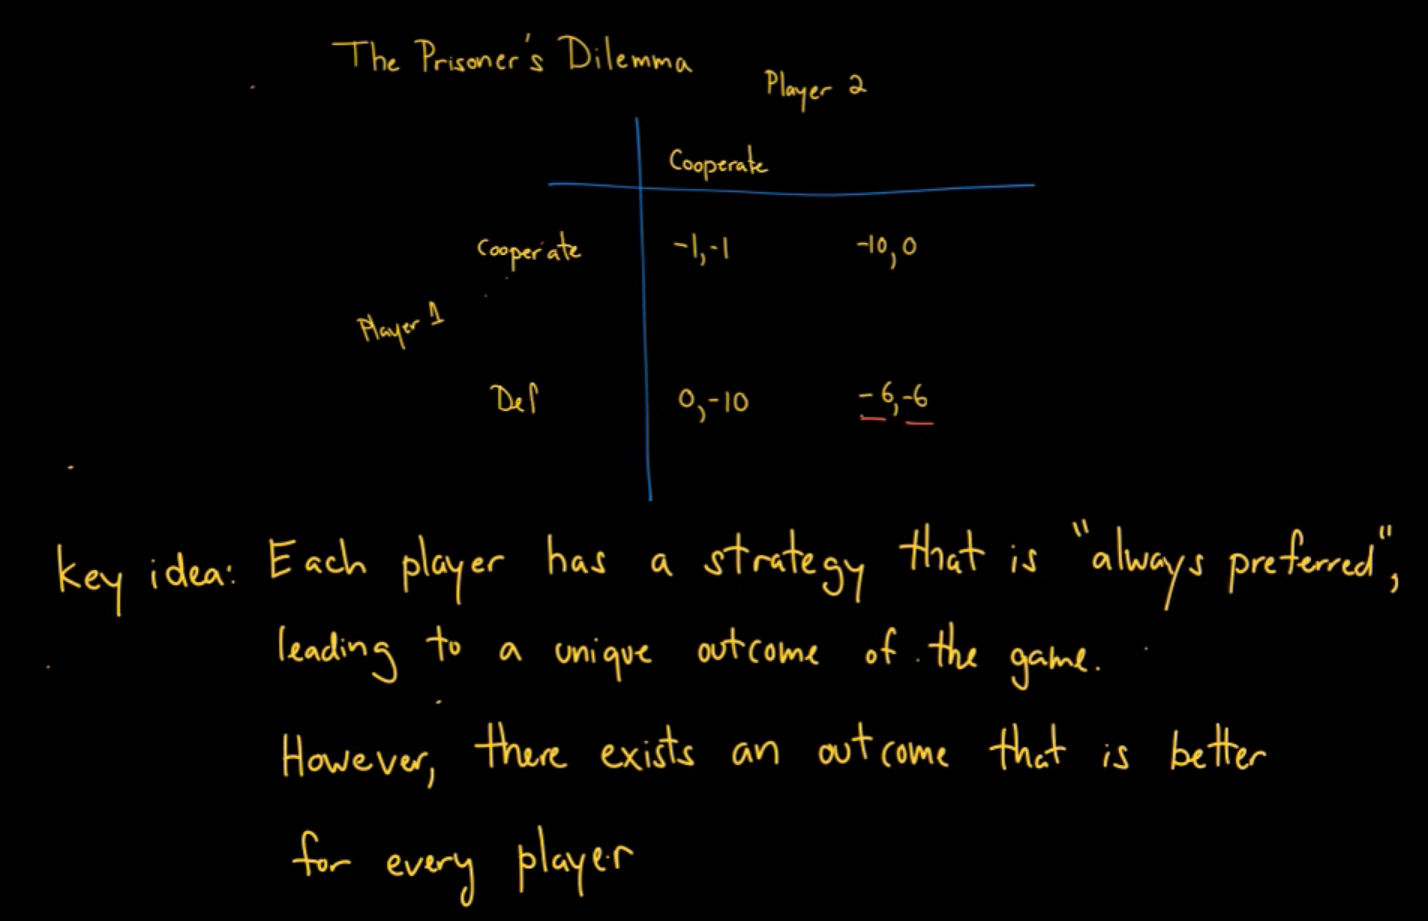 The Prisoner's Dilemma
Player 2
Cooperate
Cooperate -1,-1 -10,0
Player 1
Def 0,-10 -6,-6
key idea: Each player has a strategy that is "always preferred",
leading to a unique outcome of the game.
However, there exists an outcome that is better
for every player